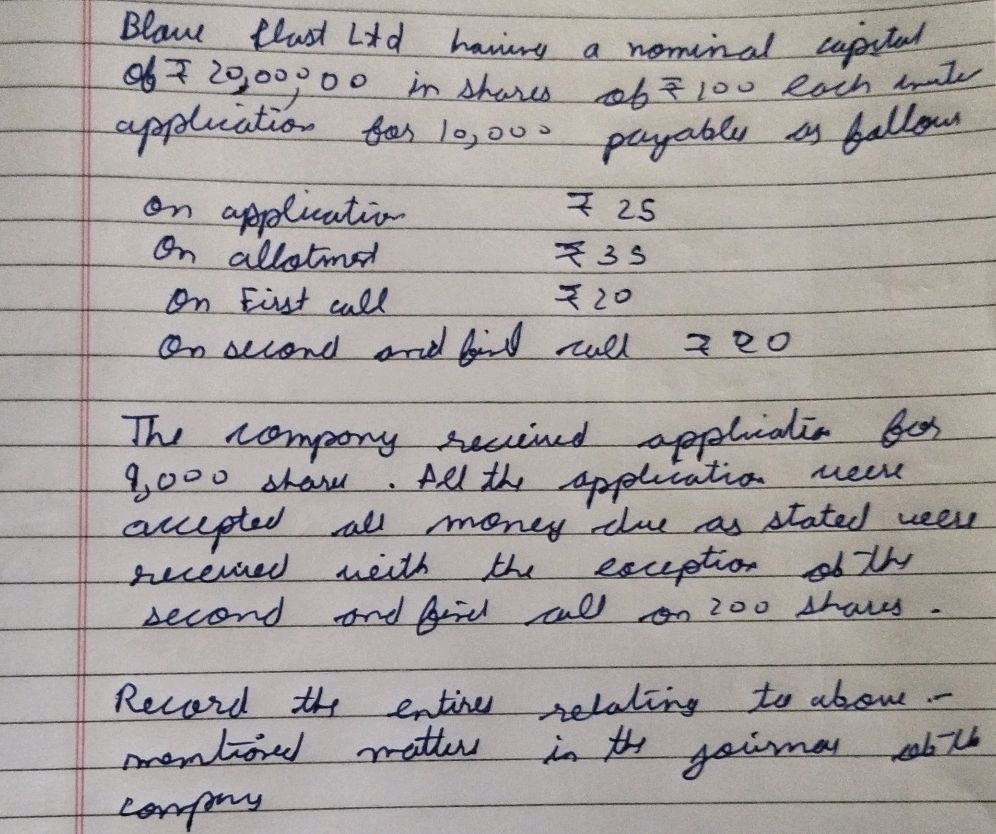 Blaue flast Ltd having a nominal capital
of ₹ 20,00,000 in shares of ₹ 100 each invite
application for 10,000 payable as follows
On application ₹ 25
On allotment ₹ 35
On First call ₹ 20
On second and final call ₹ 20
The company received application for
9,000 share. All the application were
accepted all money due as stated were
received with the exception of the
second and final call on 200 shares.
Record the entires relating to above -
mentioned matters in the journal of the
company